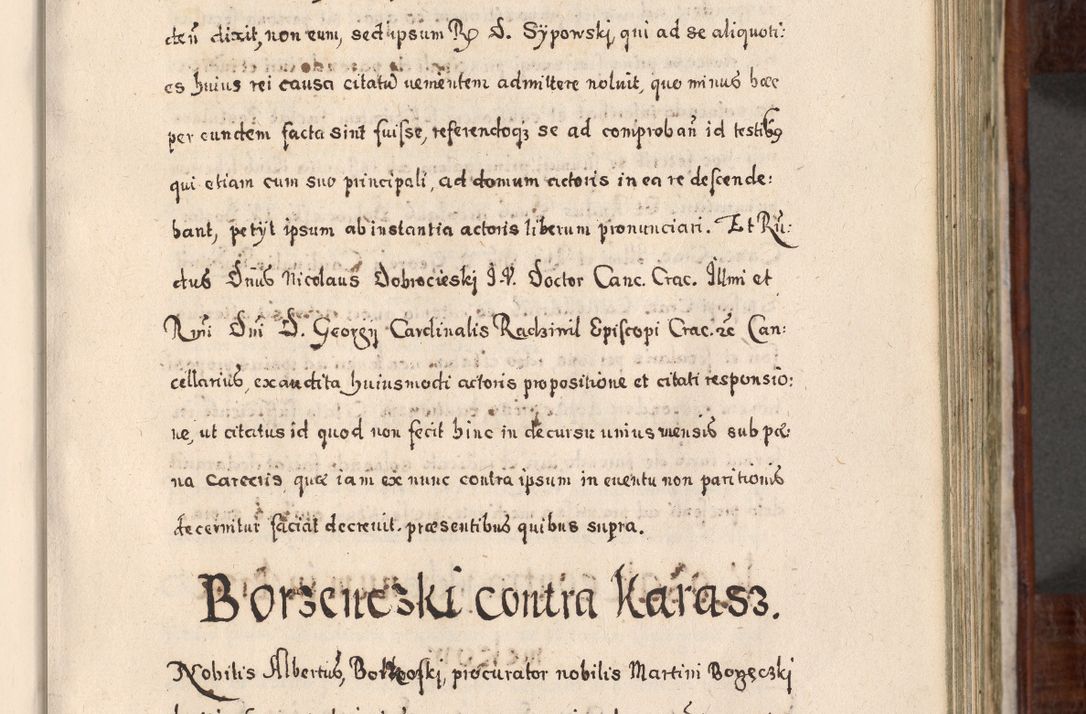 den̄ dixit, non eum, sed ipsum R. D. Sÿpowskj, qui ad se aliquoti:
es huius rei causa citatū uenientem admittere noluit, quo minus hæc
per eundem facta sint fuisse, referendoqz se ad comproban̄ id testibꝰ
qui etiam cum suo principali, ad domum actoris in ea re descende:
bant, petÿt ipsum ab instantia actoris liberum pronunciari. Et Rn̄:
dus Dnūs Nicolaus Dobrocieski I. V. Doctor Canc. Crac. Illmi et
Rmi Dni D. Georgij Cardinalis Radziuil Episcopi Crac. &c Can:
cellarius, exaudita huiusmodi actoris propositione et citati responsio:
ne, ut citatus id quod non fecit hinc in decursu unius mensis sub pæ:
na carceris quæ iam ex nunc contra ipsum in euentu non paritionis
decernitur faciat decreuit. præsentibus quibus supra.
Borzenczki contra Karasz.
Nobilis Albertus, procurator nobilis Martini Bozęczki